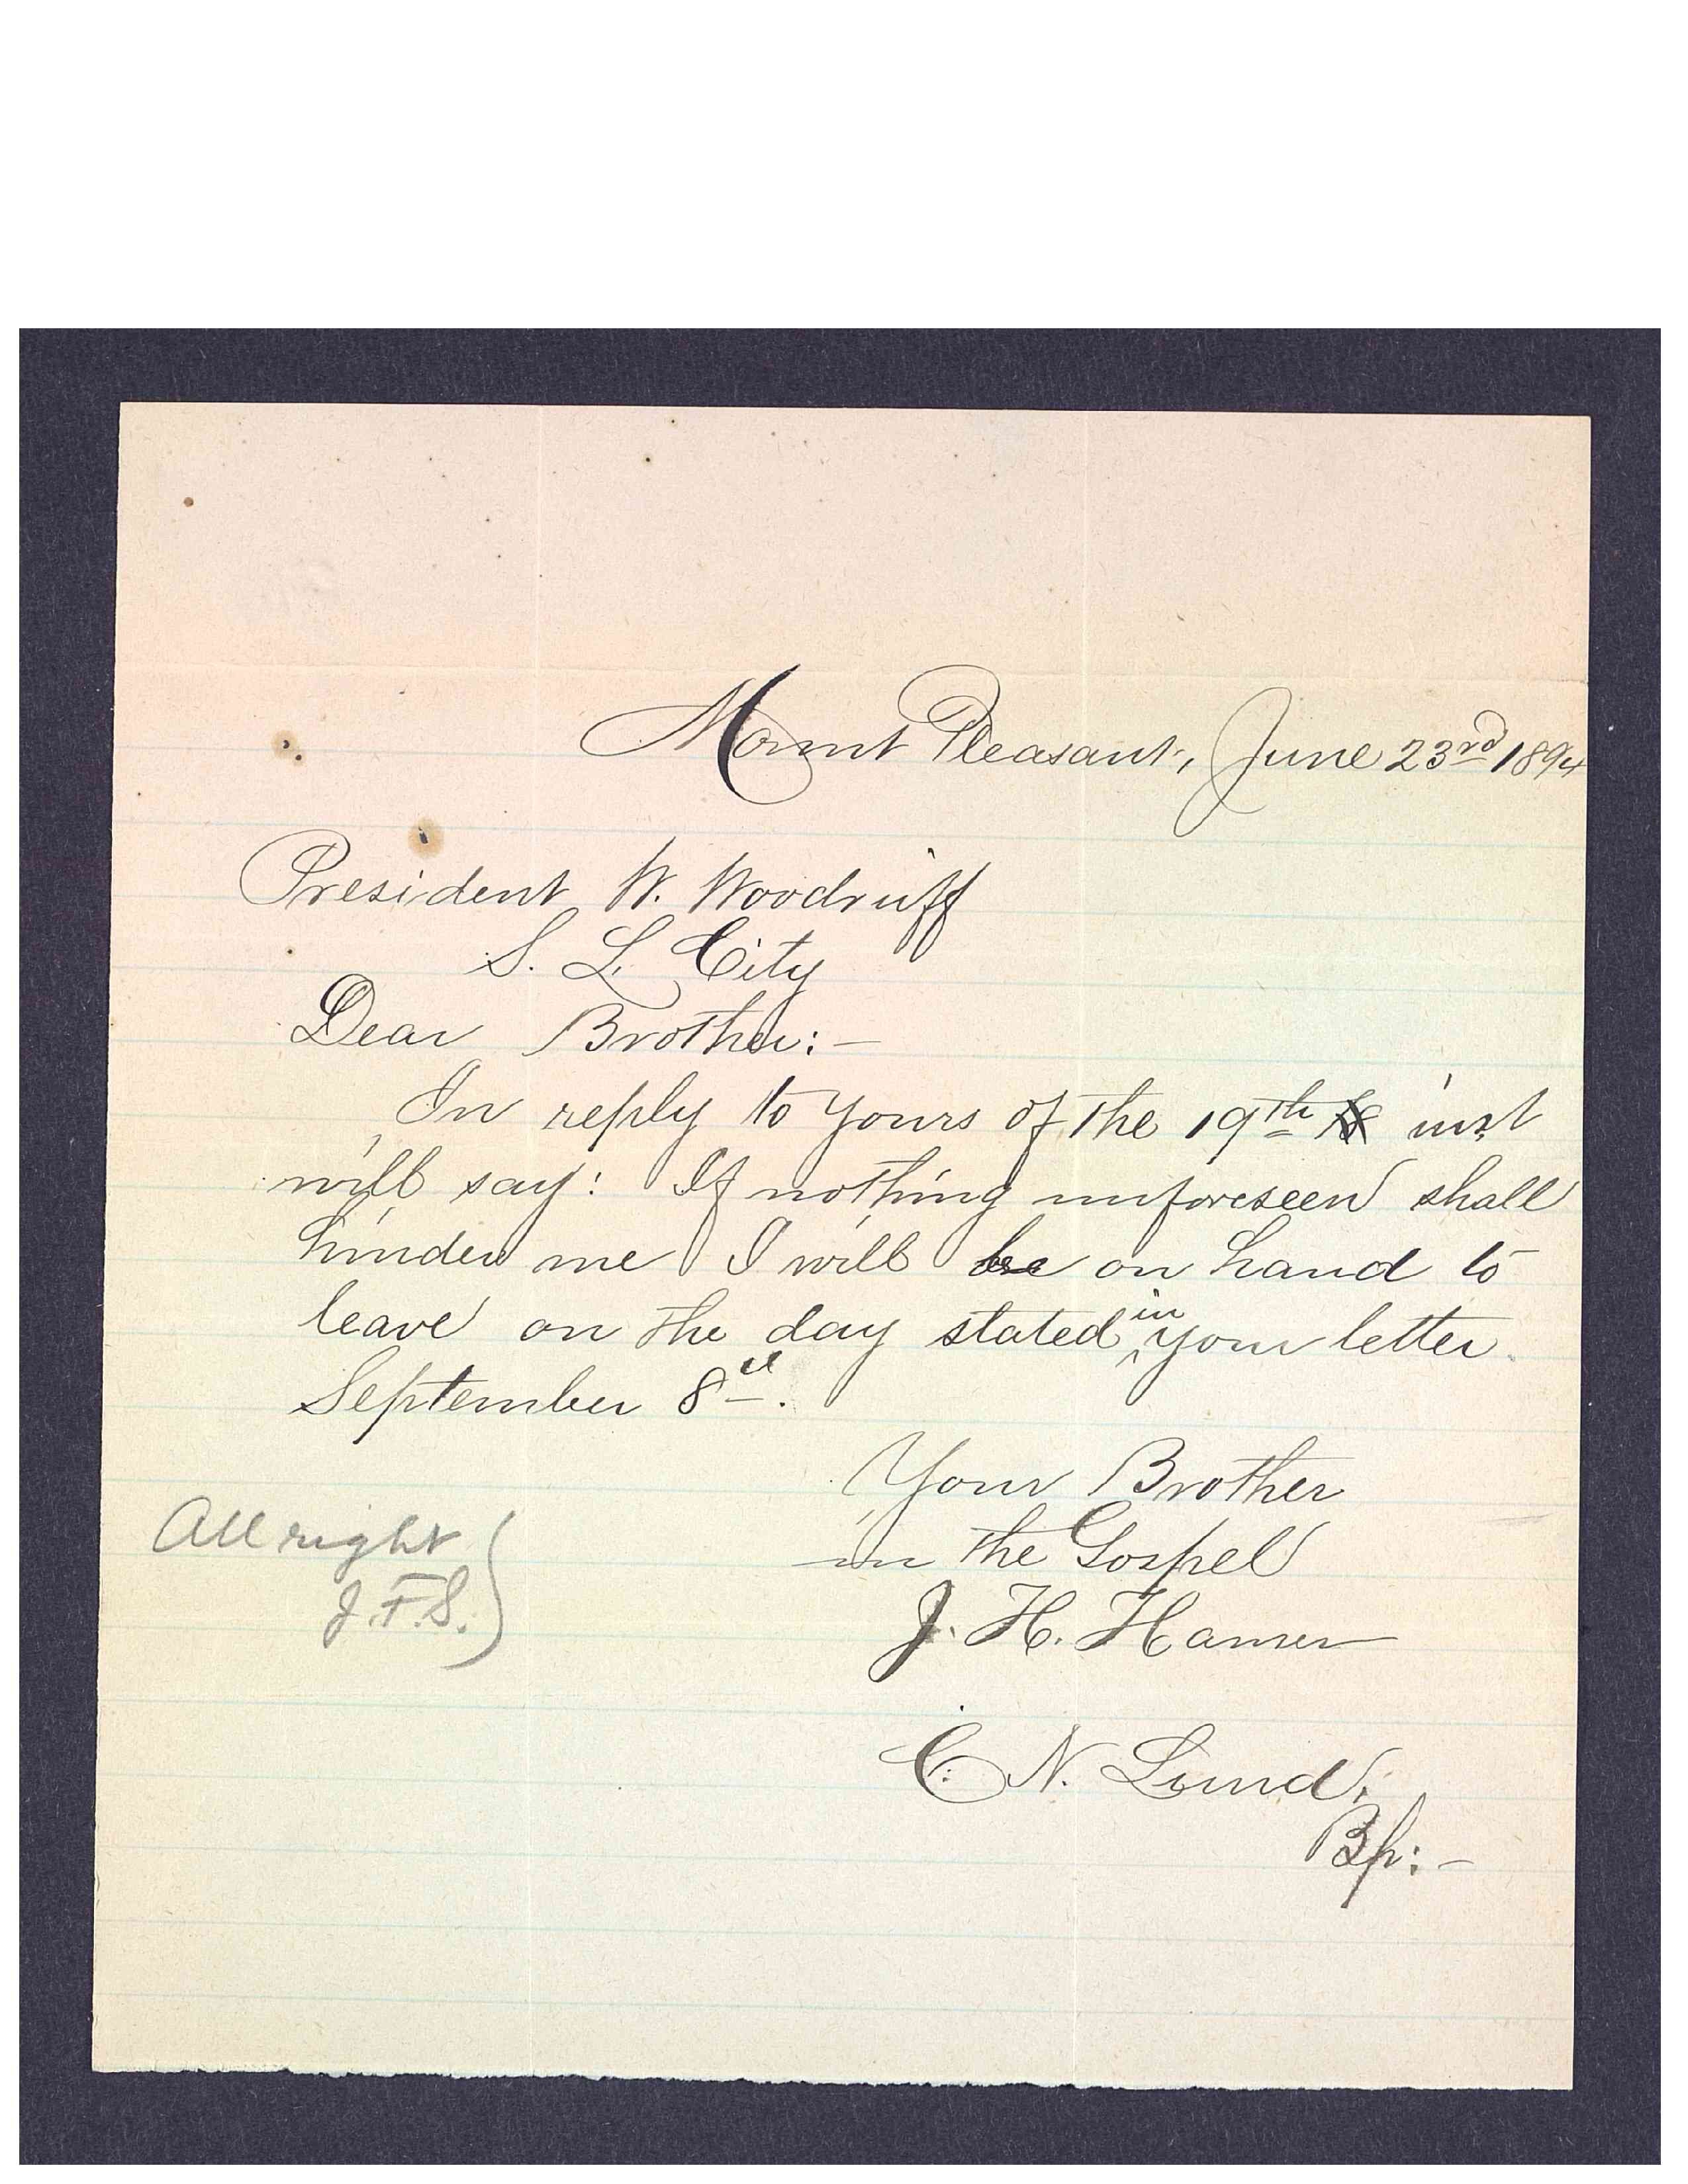 Mount Pleasant, June 23rd 1894
President W. Woodruff
S. L. City
Dear Brother:-
In reply to yours of the 19th inst
will say: If nothing unforeseen shall
hinder me I will be on hand to
leave on the day stated in your letter
September 8th.
Your Brother
in the Gospel
J. H. Hamer
All right
J. F. S.
C. N. Lund,
Bp:-